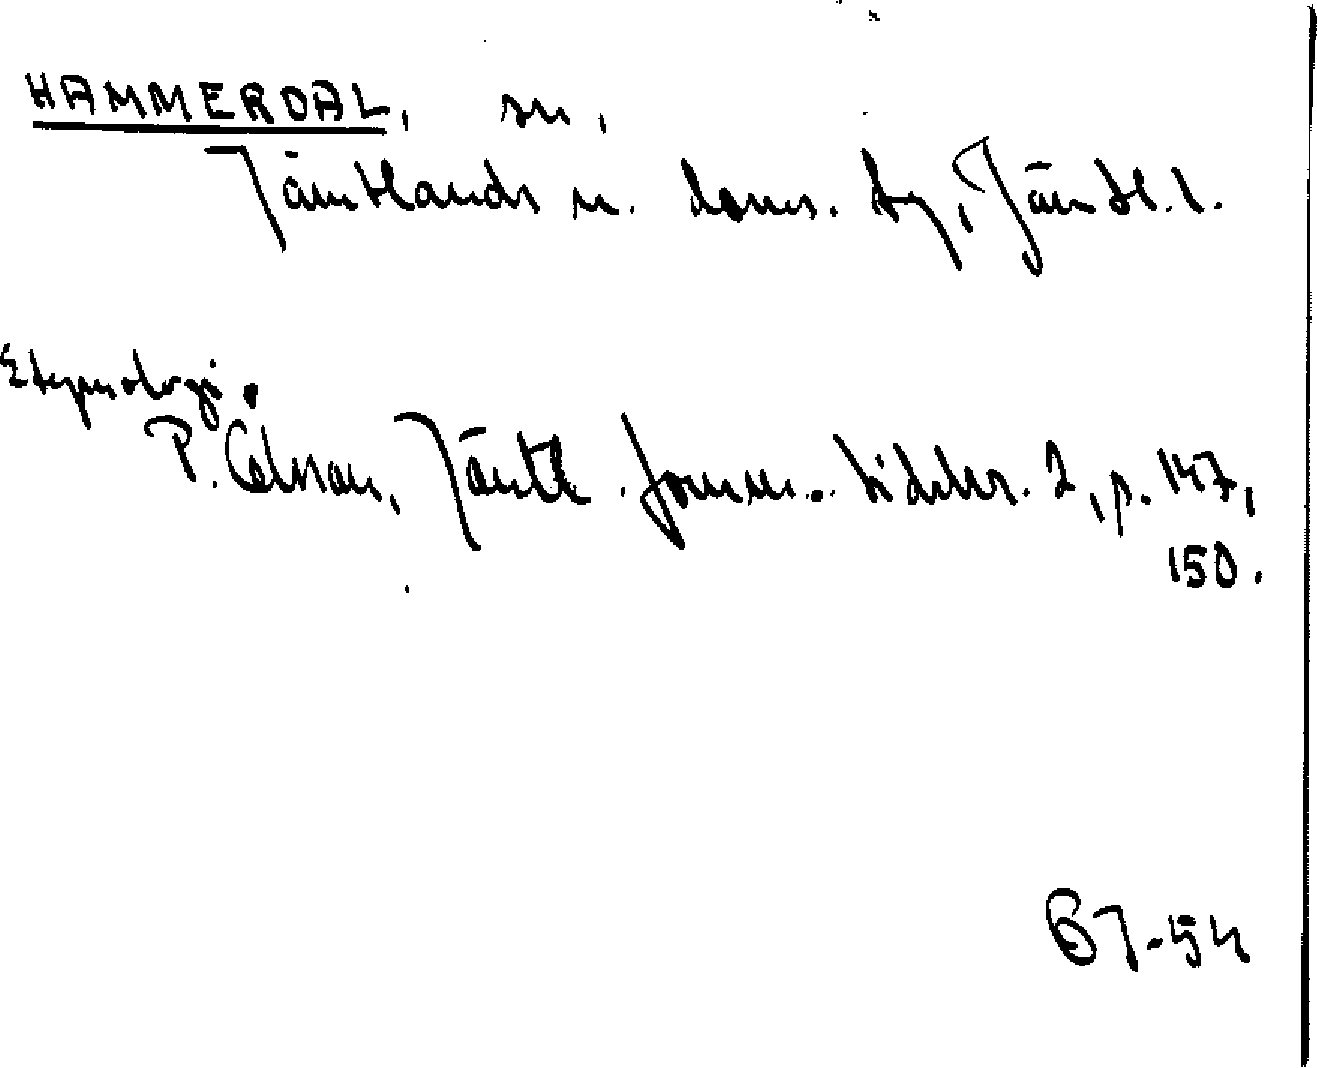 HAMMERDAL, sn,
Jämtlands n. doms. tg, Jämtl. l.
Etymologi.
P. Edman, Jämtl. fornm. tidskr. 2, p. 147,
150.
BJ-54